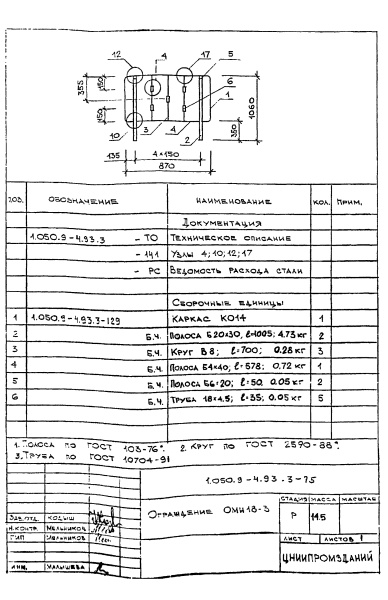 12 4 17 5
355
150
150
6
1
1060
350
10
3 4
2
135 4×150
870
ПОЗ. ОБОЗНАЧЕНИЕ НАИМЕНОВАНИЕ КОЛ. ПРИМ.
ДОКУМЕНТАЦИЯ
1.050.9-4.93.3 - ТО ТЕХНИЧЕСКОЕ ОПИСАНИЕ
- 141 УЗЛЫ 4; 10; 12; 17
- РС ВЕДОМОСТЬ РАСХОДА СТАЛИ
СБОРОЧНЫЕ ЕДИНИЦЫ
1 1.050.9-4.93.3-129 КАРКАС КО14 1
2 Б.Ч. ПОЛОСА Б20×30, ℓ=1005; 4.73 кг 2
3 Б.Ч. КРУГ В8; ℓ=700; 0.28 кг 3
4 Б.Ч. ПОЛОСА Б4×40; ℓ=578; 0.72 кг 1
5 Б.Ч. ПОЛОСА Б6×20; ℓ=50, 0.05 кг 2
6 Б.Ч. ТРУБА 18×4.5; ℓ=35; 0.05 кг 5
1. ПОЛОСА ПО ГОСТ 103-76*. 2. КРУГ ПО ГОСТ 2590-88*.
3. ТРУБА ПО ГОСТ 10704-91
1.050.9-4.93.3-75
СТАДИЯ МАССА МАСШТАБ
ОГРАЖДЕНИЕ ОМИ18-3 Р 14.5
ЗАВ.ОТД. КОДЫШ
Н.КОНТР. МЕЛЬНИКОВ
ГИП МЕЛЬНИКОВ
ЛИСТ ЛИСТОВ 1
ЦНИИПРОМЗДАНИЙ
ИНЖ. МАЛЫШЕВА